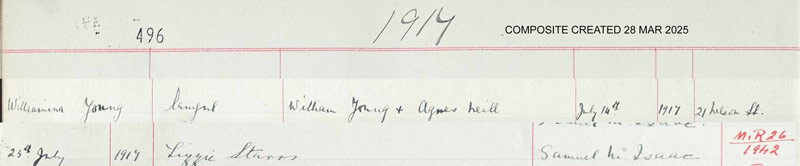 496 1917 COMPOSITE CREATED 28 MAR 2025
Williamina Young William Young + Agnes Neill July 14th 1917 21 Nelson St.
25th July 1917 Lizzie Starrs Samuel McIsaac M.R26
1942